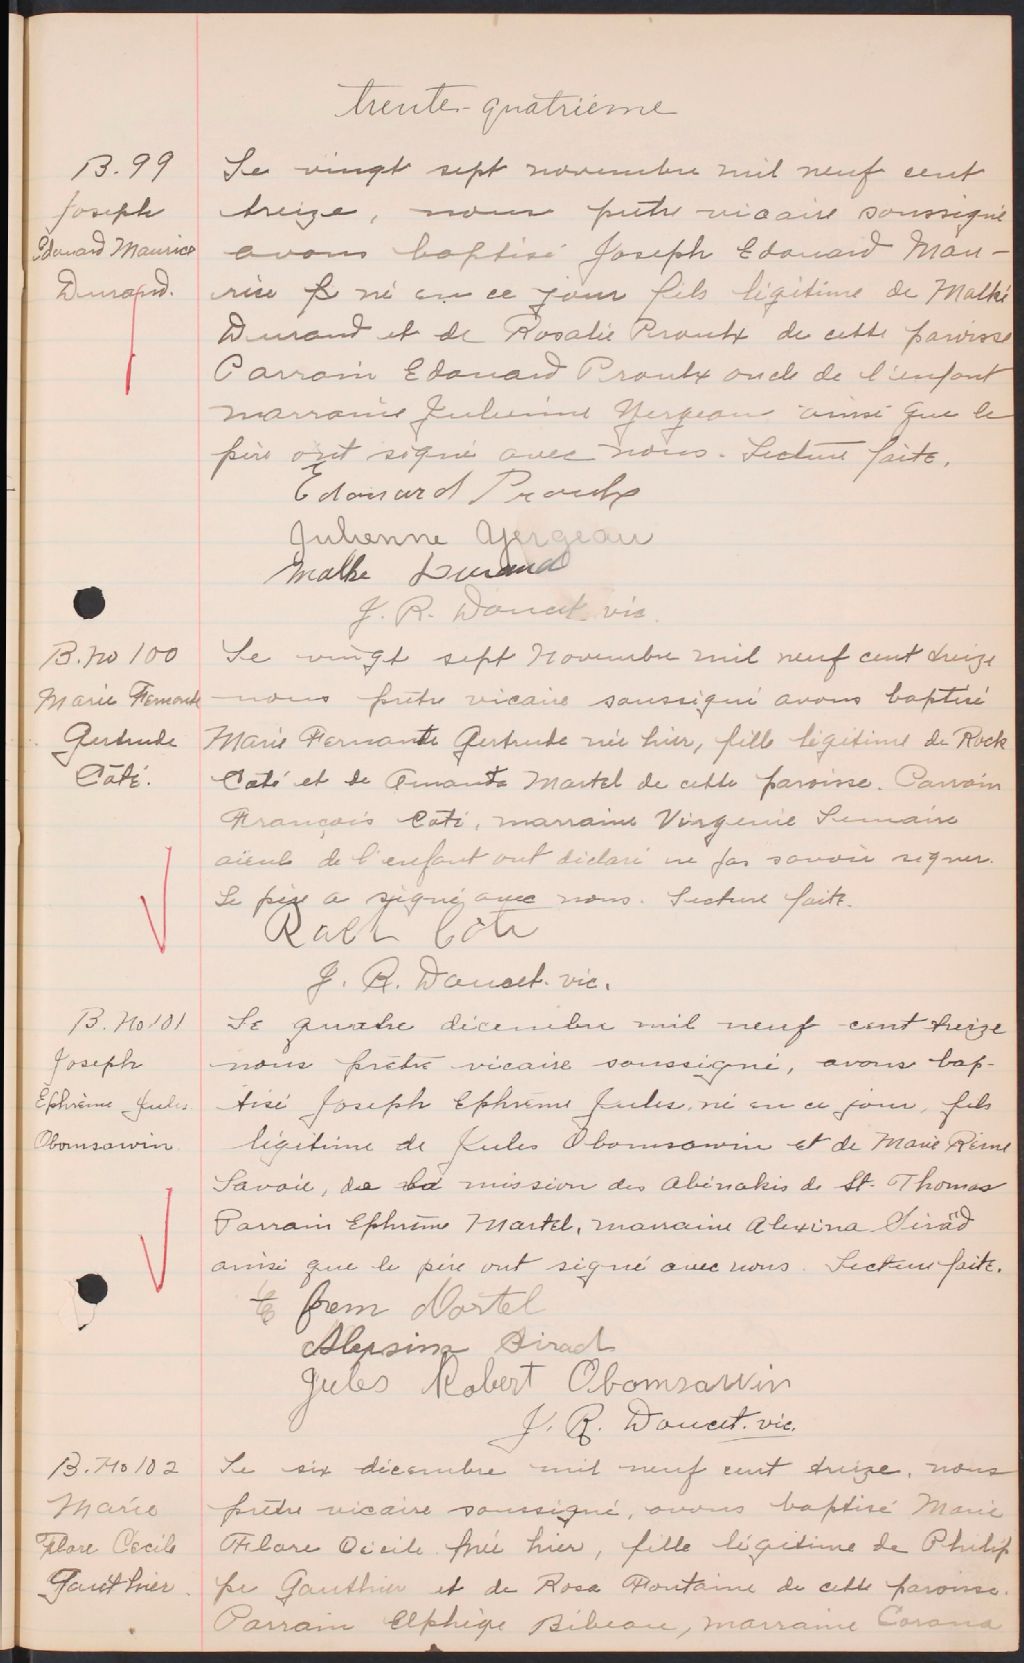 trente-quatrième
B. 99
Joseph
Edouard Maurice
Durand.
Le vingt sept novembre mil neuf cent
treize, nous prêtre vicaire soussigné
avons baptisé Joseph Edouard Mau-
rice né en ce jour fils légitime de Malké
Durand et de Rosalie Proulx de cette paroisse
Parrain Edouard Proulx oncle de l'enfant
marraine Julienne Yergeau ainsi que le
père ont signé avec nous. Lecture faite.
Edouard Proulx
Julienne Yergeau
Malke Durand
J. R. Doucet vic.
B. No 100
Marie Fernande
Gertrude
Côté.
Le vingt sept Novembre mil neuf cent treize
nous prêtre vicaire soussigné avons baptisé
Marie Fernante Gertrude née hier, fille légitime de Rock
Coté et de Amanda Martel de cette paroisse. Parrain
François Coté, marraine Virgenie Lemaire
aïeuls de l'enfant ont déclaré ne pas savoir signer.
Le père a signé avec nous. Lecture faite.
Roch Côté
J. R. Doucet. vic.
B. No 101
Joseph
Ephrème Jules
Obomsawin
Le quatre décembre mil neuf cent treize
nous prêtre vicaire soussigné, avons bap-
tisé Joseph Ephrème Jules, né en ce jour, fils
légitime de Jules Obomsawin et de Marie Reine
Savoie, de la mission des Abénakis de St. Thomas
Parrain Ephrème Martel, marraine Alexina Sirad
ainsi que le père ont signé avec nous. Lecture faite.
frem Martel
Alexsina Sirad
Jules Robert Obomsawin
J. R. Doucet. vic.
B. No 102
Marie
Flore Cécile
Gauthier.
Le six décembre mil neuf cent treize, nous
prêtre vicaire soussigné, avons baptisé Marie
Flore Cécile née hier, fille légitime de Philip
pe Gauthier et de Rosa Fontaine de cette paroisse.
Parrain Elphège Bibeau, marraine Corona